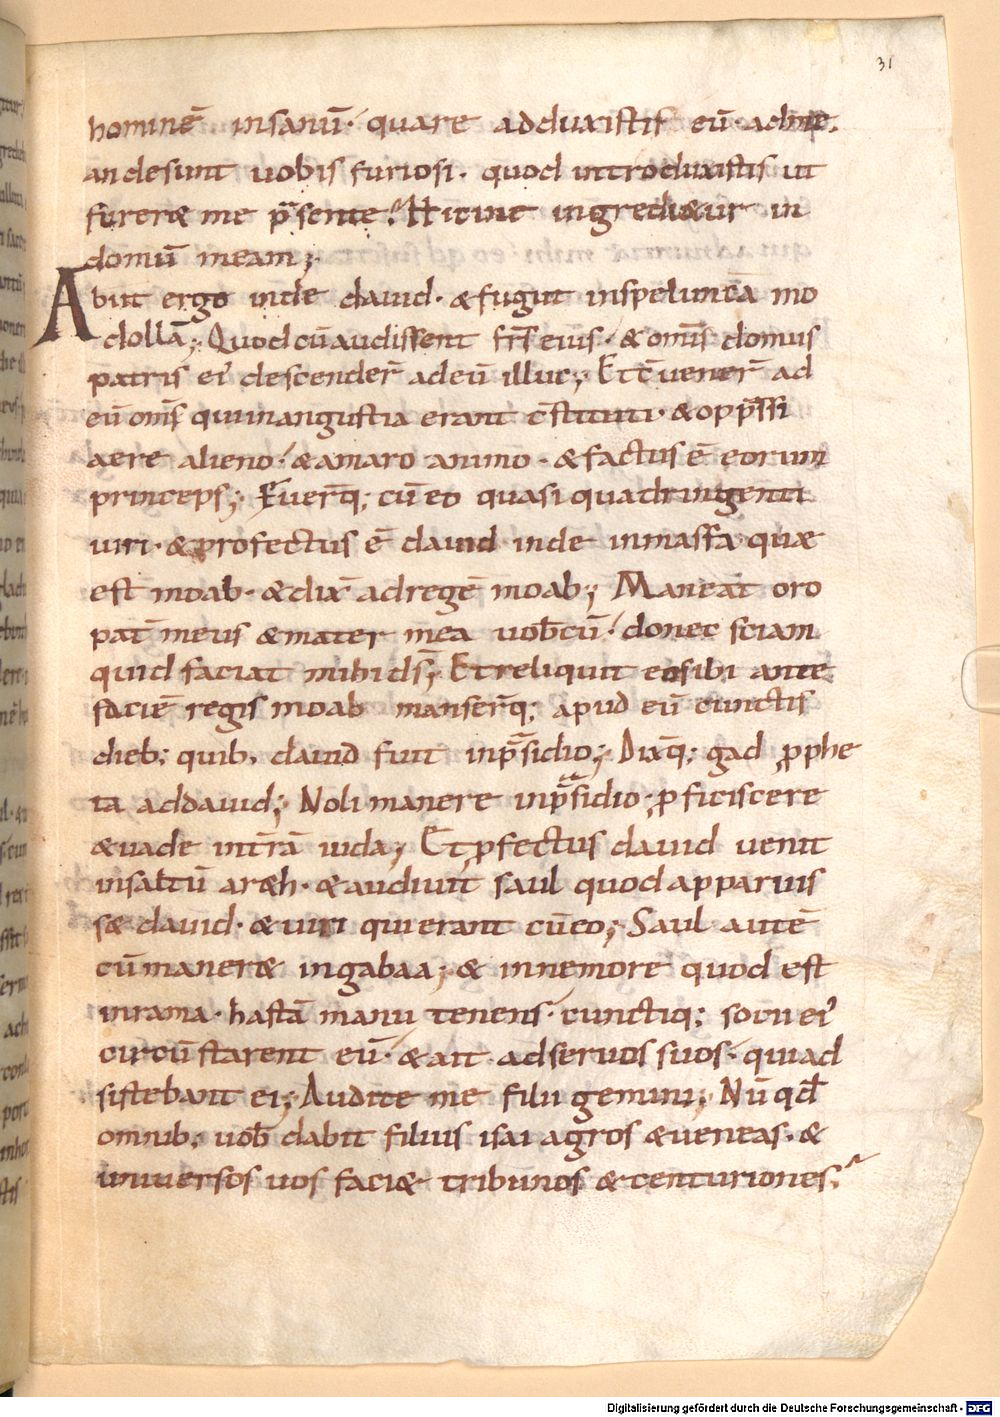 31
hominē insanū· quare adduxistis eū· ad me.
an desunt uobis furiosi· quod introduxistis ut
furer& me p̄sente? Hicine ingredi&ur in
domū meam;
Abiit ergo inde dauid· & fugiit inspeluncā ino
dollā; Quod cū audissent fr̄s eius· & om̄s domus
patris ei' descender̄ adeū illuc; Et c̄uener̄ ad
eū om̄s qui inangustia erant c̄stituti· & opp̄ssi
aere alieno· & amaro animo· & factus ē eorum
princeps; Fuer̄q; cū eo quasi quadringenti
uiri· & profectus ē dauid inde inmassa quae
est moab· & dix̄ adregē moab; Maneat oro
pat̄ meus & mater mea uob̄cū· donec sciam
quid faciat mihi d̄s; Et reliquit eos ibi ante
faciē regis moab manser̄q; apud eū cunctis
dieb; quib; dauid fuit inp̄sidio; Dix̄q; gad pphe
ta addauid; Noli manere inp̄sidio· pficiscere
& uade int̄rā iuda; Et pfectus dauid uenit
insaltū ar&h· & audiuit saul quod apparuis
s& dauid· & uiri qui erant cū eo; Saul autē
cū maner& ingabaa; & innemore quod est
inrama· hastā manu tenens· cunctiq; socii ei'
circūstarent eū· & ait adseruos suos· qui ad
sistebant ei; Audite me filii gemini; Nū qd̄
omnib; uob̄ dabit filius isai agros & uineas· &
uniuersos uos faci& tribunos & centuriones;
Digitalisierung gefördert durch die Deutsche Forschungsgemeinschaft - DFG